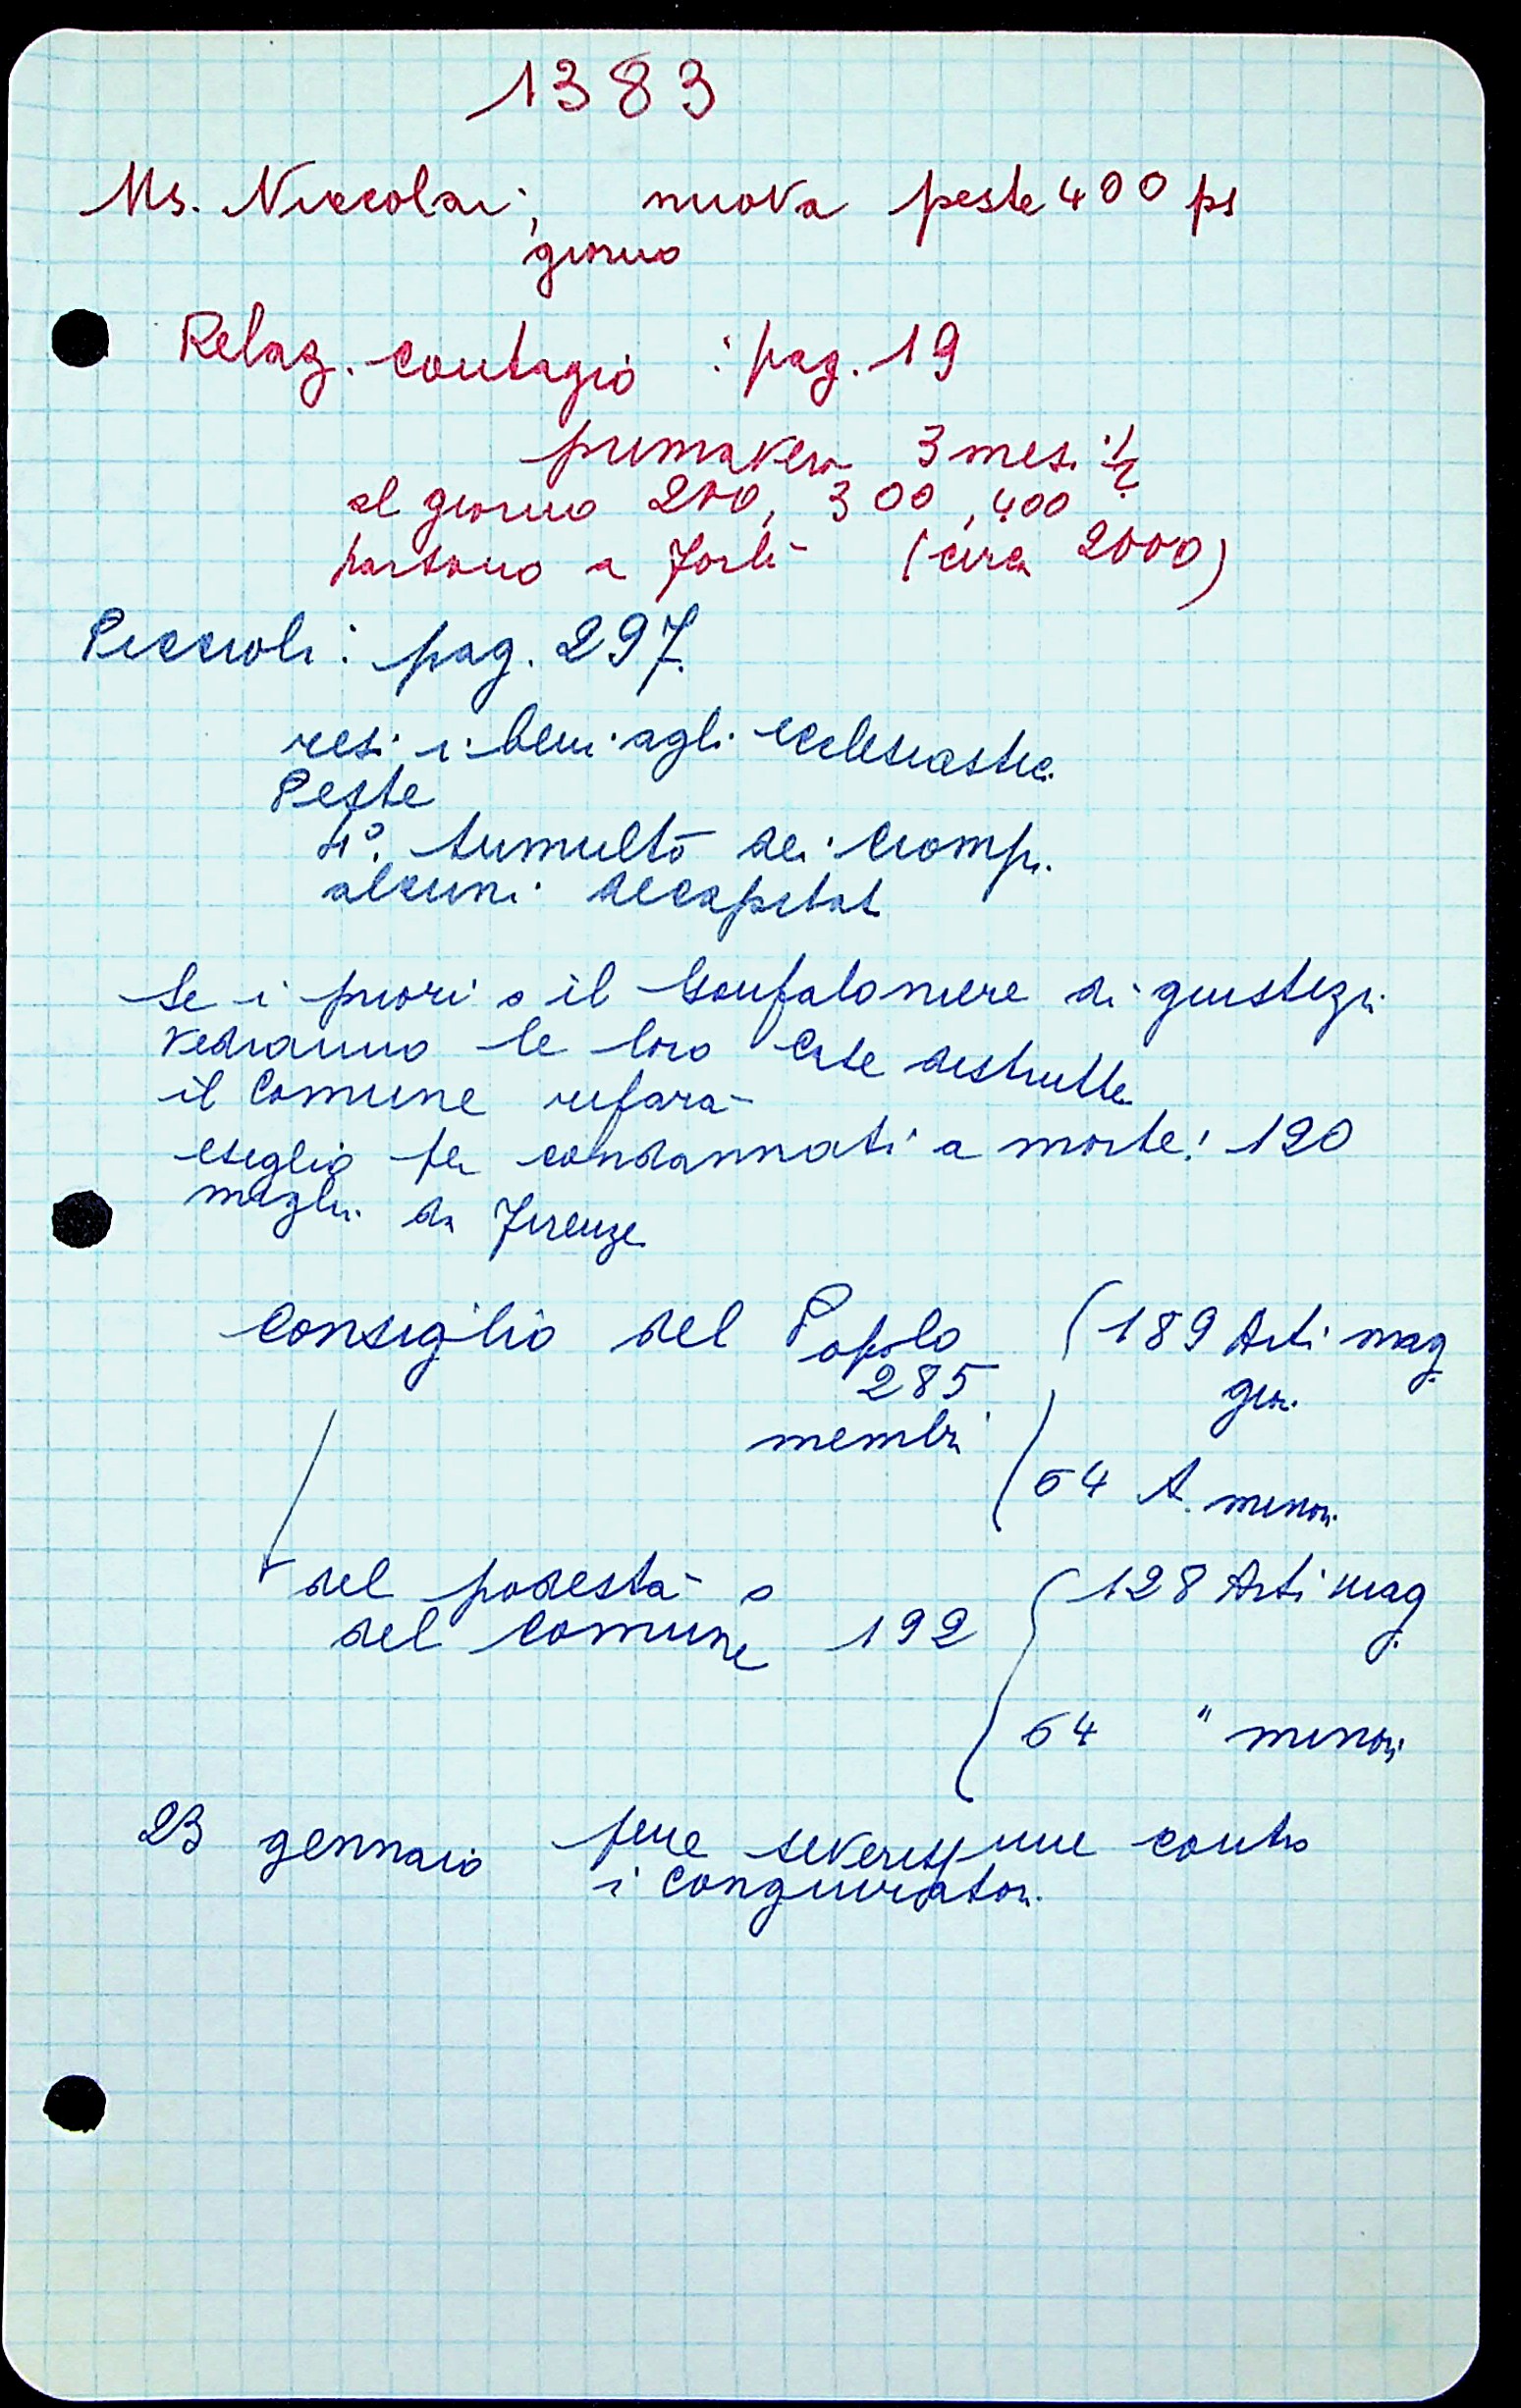 1383
Ms. Niccolai; nuova peste 400 ps
giorno
Relaz. contagio : pag. 19
primavera 3 mesi 1/2
al giorno 200, 300, 400
partono a Forlì (circa 2000)
Piccioli: pag. 297.
resi i beni agli ecclesiastici
Peste
4°. tumulto dei Ciompi.
alcuni decapitati
Se i priori o il Gonfaloniere di giustizi
vedranno le loro Case distrutte
il Comune rifarà
esiglio per condannati a morte! 120
miglia da Firenze
Consiglio del Popolo (189 Arti mag
285 gior.
membri
64 A. minori
del podestà o 128 Arti mag.
del Comune 192
64 " minori
23 gennaio pene severissime contro
i congiuratori.